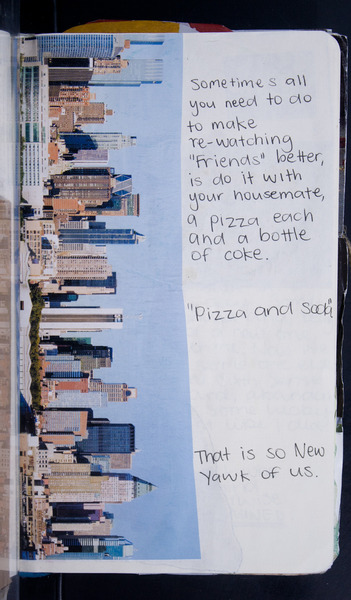 Sometimes all
you need to do
to make
re-watching
"Friends" better,
is do it with
your housemate,
a pizza each
and a bottle
of coke.
"Pizza and Soda"
That is so New
Yawk of us.